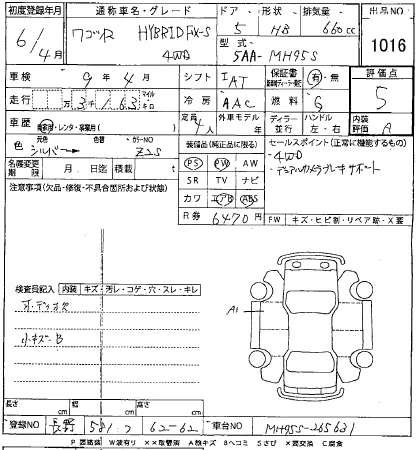 初度登録年月 通称車名・グレード ドア 形状 排気量 出品NO
6/4月 ワゴンR HYBRID FX-S 4WD 5 HB 660cc 1016
型式 5AA-MH95S
車検 9年4月 シフト IAT 保証書 有・無 評価点
走行 万3千163 マイル キロ 冷房 AAC 燃料 G 5
車歴 自家用・レンタ・事業用( ) 定員 4人 外車モデル ディーラー 並行 ハンドル 左・右 内装評価 A
色 元色 シルバー 色替 カラーNO Z2S
装備品(純正品に限る) セールスポイント(正常に機能するもの)
PS PW AW ・4WD
名義変更期限 月 日迄 積載 t SR TV ナビ ・デュアルカメラブレーキサポート
注意事項(欠品・修復・不具合箇所および状態) カワ エアB ABS
R券 6470円 FW キズ・ヒビ割・リペア跡・X要
検査員記入 内装 キズ・汚レ・コゲ・穴・スレ・キレ
小キズ・B
A1
長さ cm 幅 cm 高さ cm
登録NO 長野 581 つ 62-62 車台NO MH95S-265631
P 要塗装 W波有り ××取替済 A線キズ Bヘコミ Sさび X要交換 C腐食